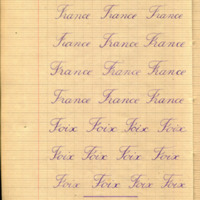 France France France
France France France
France France France
France France France
Foix Foix Foix Foix
Foix Foix Foix Foix
Foix Foix Foix Foix